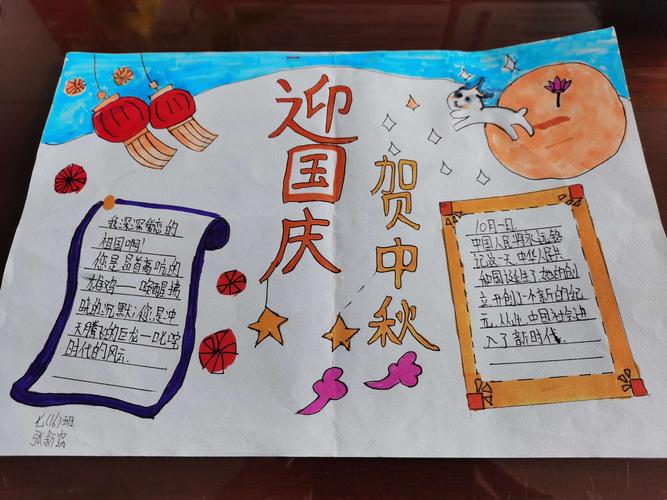 迎国庆
贺中秋
我深深爱恋的
祖国啊!
您是昂首高吭的
雄鸡——唤醒拂
晓的沉默;您是冲
天腾飞的巨龙—叱咤
时代的风云.
10月一日.
中国人民将永远铭
记这一天.中华人民共
和国诞生了.她的创
立开创了一个新的纪
元.从此,中国社会进
入了新时代.
七(16)班
张新